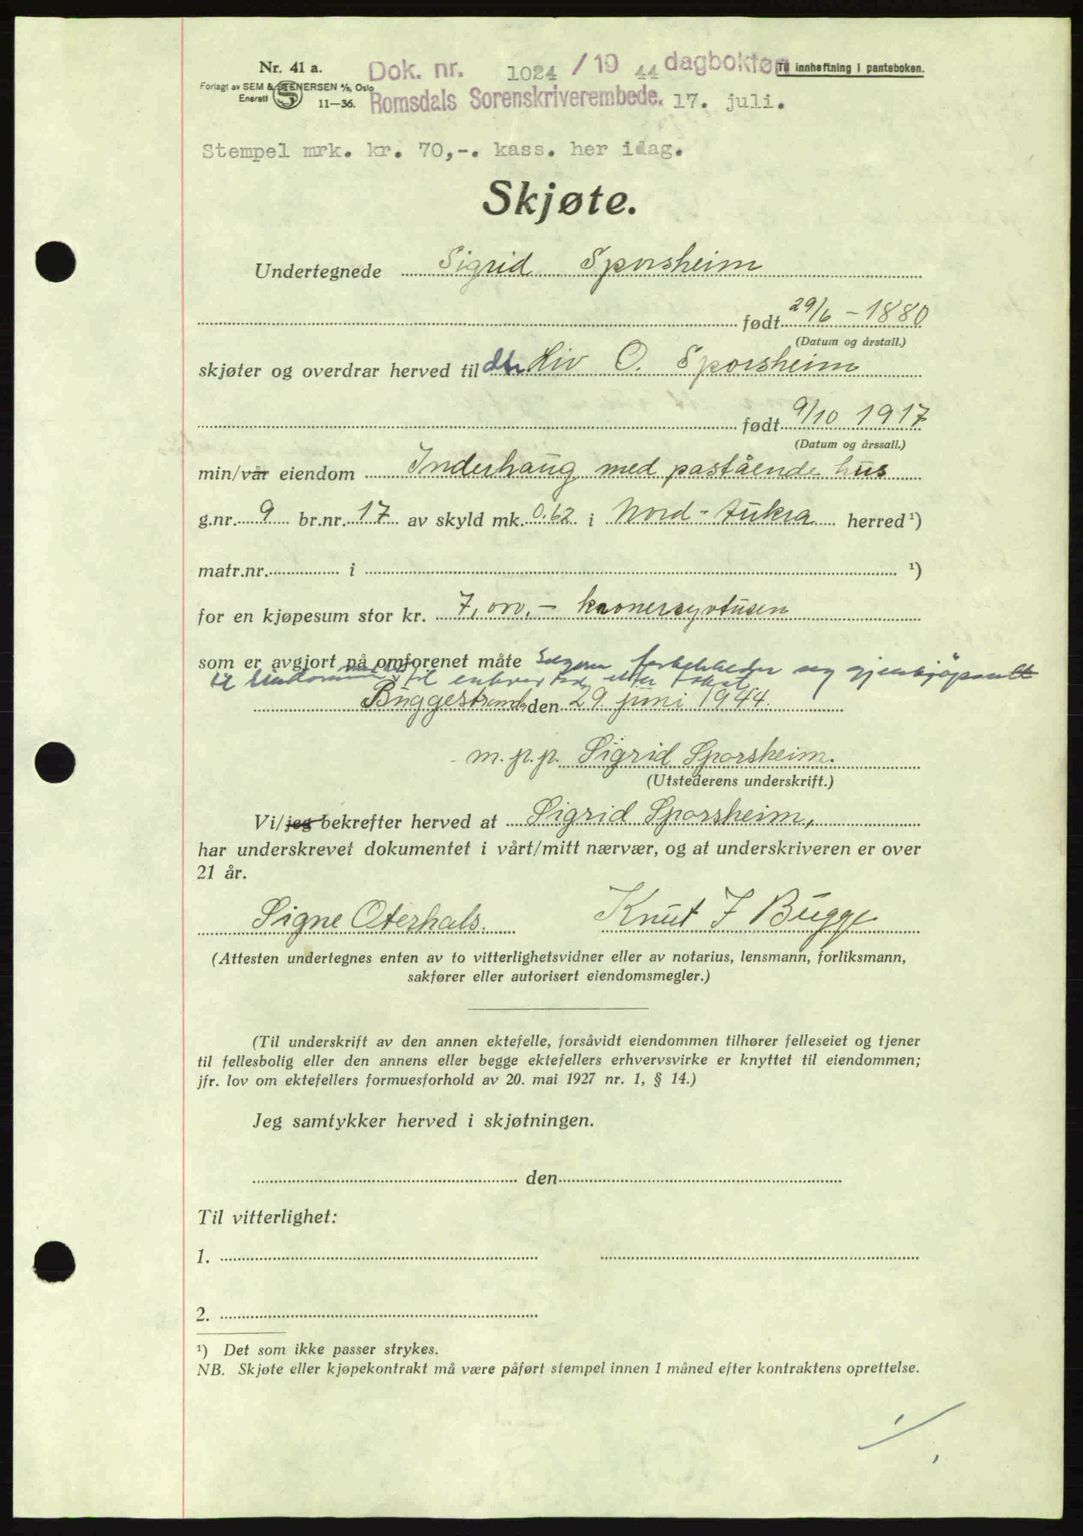 Nr. 41 a.
Forlagt av SEM & STENERSEN A/S, Oslo
Enerett 11—36.
Dok. nr. 1024 / 19 44 dagbokfør
Til innheftning i panteboken.
Romsdals Sorenskriverembede. 17. juli.
Stempel mrk. kr. 70,-. kass. her idag.
Skjøte.
Undertegnede Sigrid Sporsheim
født 29/6 - 1880
(Datum og årstall.)
skjøter og overdrar herved til Hiv O. Sporsheim
født 9/10 1917
(Datum og årssall.)
min/vår eiendom Inderhaug med påstående hus
g.nr. 9 br.nr. 17 av skyld mk. 0.62 i Nord-Aukra herred ¹)
matr.nr. i ¹)
for en kjøpesum stor kr. 7,000,- kronersyvtusen
som er avgjort på omforenet måte Selgeren forbeholder seg gjenkjøpsrett
til eiendommen til enhver tid etter takst
Buggestrand den 29 juni 1944.
m.p.p. Sigrid Sporsheim.
(Utstederens underskrift.)
Vi/jeg bekrefter herved at Sigrid Sporsheim,
har underskrevet dokumentet i vårt/mitt nærvær, og at underskriveren er over
21 år.
Signe Oterhals. Knut J Bugge
(Attesten undertegnes enten av to vitterlighetsvidner eller av notarius, lensmann, forliksmann,
sakfører eller autorisert eiendomsmegler.)
(Til underskrift av den annen ektefelle, forsåvidt eiendommen tilhører felleseiet og tjener
til fellesbolig eller den annens eller begge ektefellers erhvervsvirke er knyttet til eiendommen;
jfr. lov om ektefellers formuesforhold av 20. mai 1927 nr. 1, § 14.)
Jeg samtykker herved i skjøtningen.
den
Til vitterlighet:
1.
2.
¹) Det som ikke passer strykes.
NB. Skjøte eller kjøpekontrakt må være påført stempel innen 1 måned efter kontraktens oprettelse.